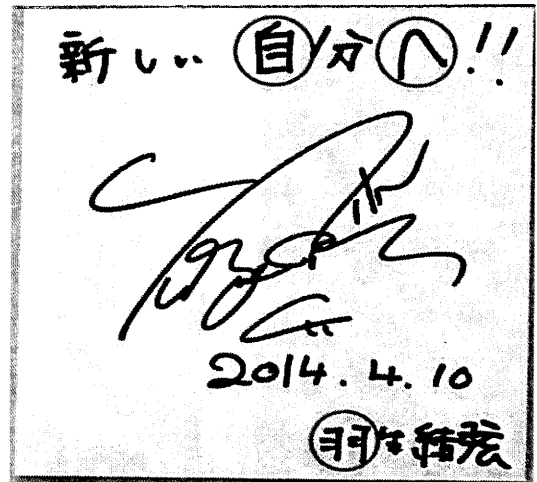 新しい自分へ!!
2014.4.10
羽生結弦